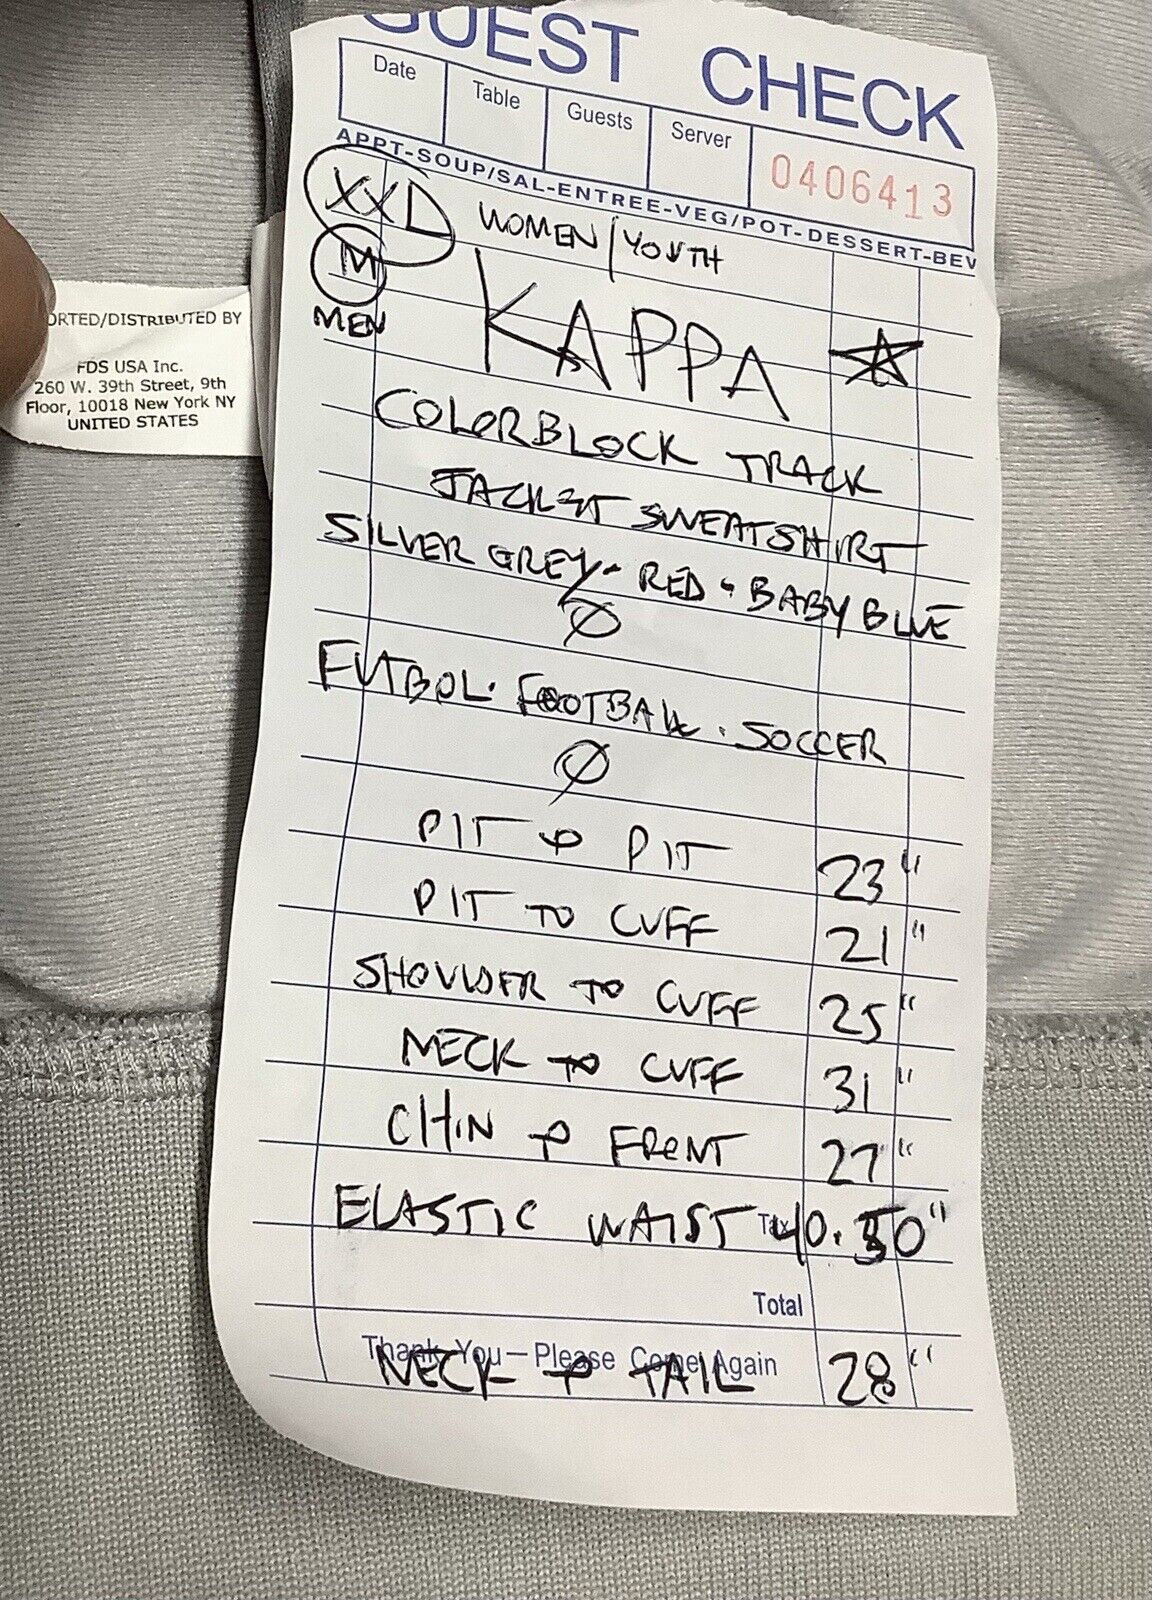 GUEST CHECK
Date Table Guests Server 0406413
APPT-SOUP/SAL-ENTREE-VEG/POT-DESSERT-BEV
XXL WOMEN/YOUTH
M
MEN
KAPPA
COLORBLOCK TRACK
JACKET SWEATSHIRT
SILVER GREY - RED - BABY BLUE
FUTBOL. FOOTBALL. SOCCER
PIT TO PIT 23"
PIT TO CUFF 21"
SHOULDER TO CUFF 25"
NECK TO CUFF 31"
CHIN TO FRONT 27"
ELASTIC WAIST Tax 40.50"
Total
Thank You — Please Come Again
NECK TO TAIL 28"
ORTED/DISTRIBUTED BY
FDS USA Inc.
260 W. 39th Street, 9th
Floor, 10018 New York NY
UNITED STATES